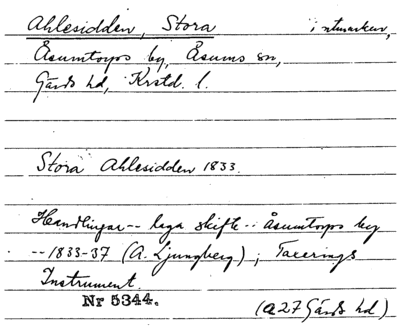 Ahlesidden, Stora i utmarken,
Åsumtorps by, Åsums sn,
Gärds hd, Krstd. l.
Stora Ahlesidden 1833.
Handlingar -- laga skifte -- Åsumtorps by
-- 1833-37 (A. Ljungberg); Taxerings
Instrument.
Nr 5344.
(a27 Gärds hd)